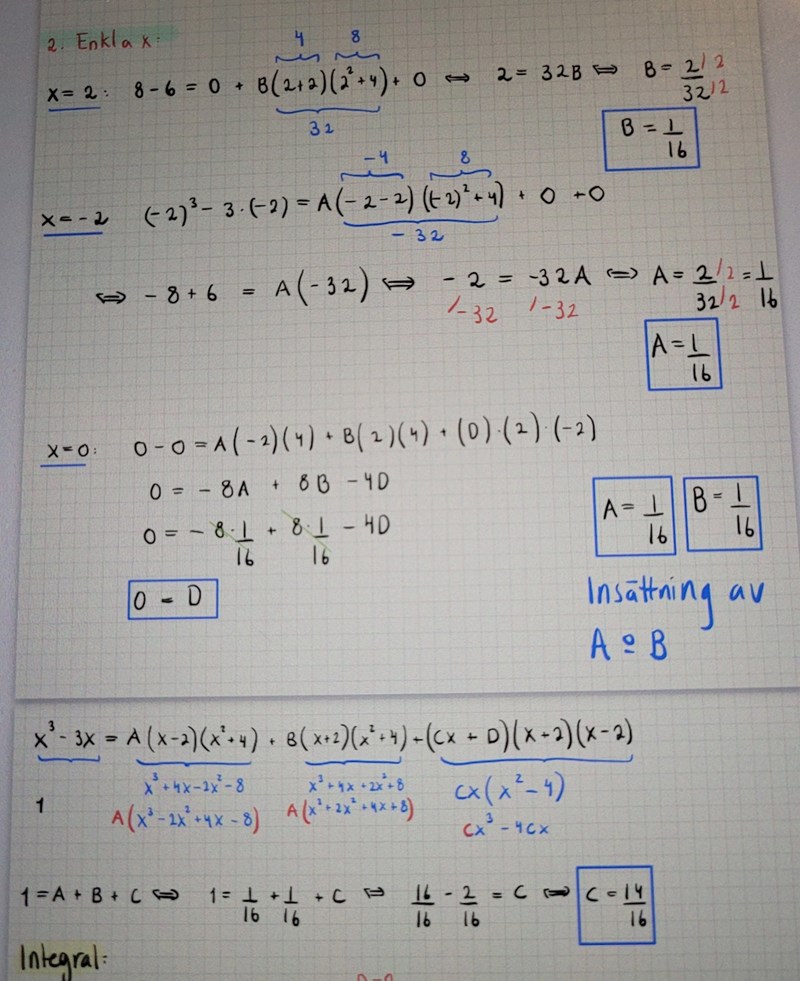 2. Enkla x:
4 8
x = 2: 8 - 6 = 0 + B(2+2)(2²+4) + 0 ⇔ 2 = 32B ⇔ B = 2/2 / 32/2
32
B = 1/16
-4 8
x = -2 (-2)³ - 3·(-2) = A(-2-2)((-2)²+4) + 0 + 0
-32
⇔ -8 + 6 = A(-32) ⇔ -2 = -32A ⇔ A = 2/2 / 32/2 = 1/16
/-32 /-32
A = 1/16
x = 0: 0 - 0 = A(-2)(4) + B(2)(4) + (D)·(2)·(-2)
0 = -8A + 8B - 4D
0 = -8·1/16 + 8·1/16 - 4D
A = 1/16 B = 1/16
0 = D
Insättning av
A o B
x³ - 3x = A(x-2)(x²+4) + B(x+2)(x²+4) + (Cx + D)(x+2)(x-2)
x³+4x-2x²-8 x³+4x+2x²+8 Cx(x²-4)
1 A(x³-2x²+4x-8) A(x²+2x²+4x+8) Cx³-4Cx
1 = A + B + C ⇔ 1 = 1/16 + 1/16 + C ⇔ 16/16 - 2/16 = C ⇔ C = 14/16
Integral: